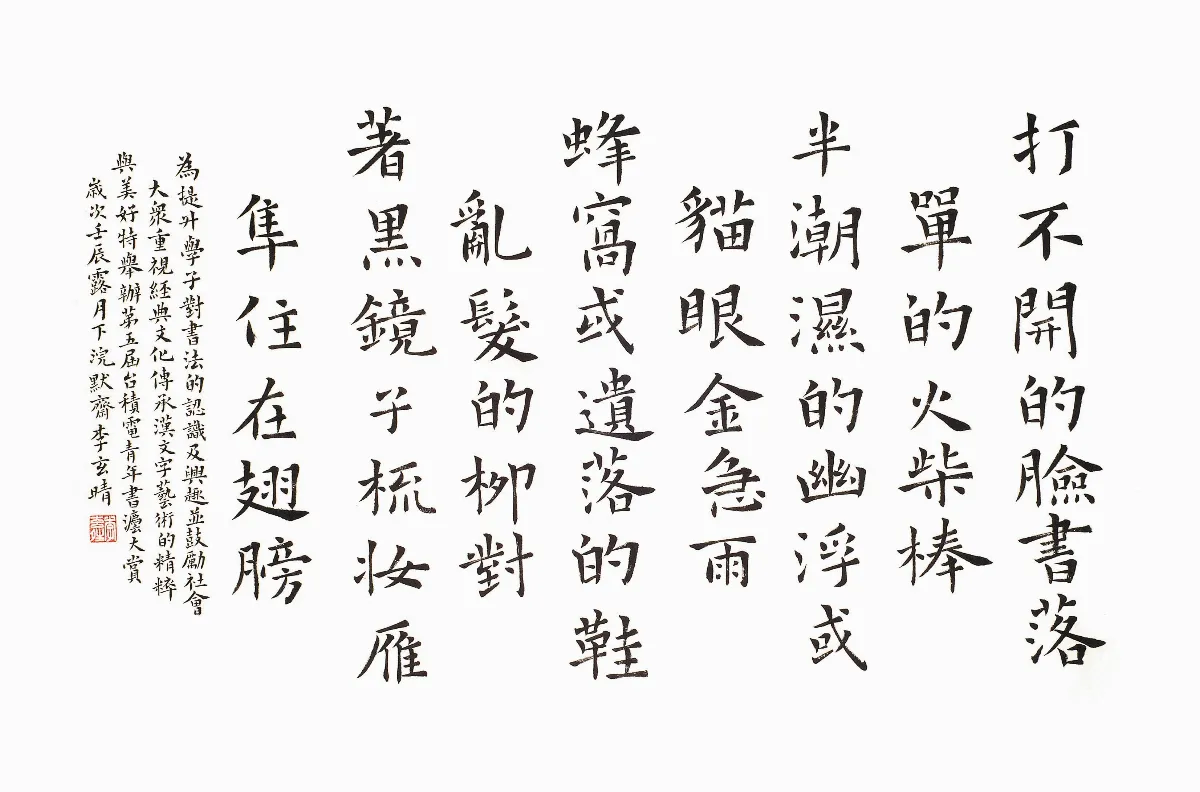 打不開的臉書落
單的火柴棒
半潮濕的幽浮或
貓眼金急雨
蜂窩或遺落的鞋
亂髮的柳對
著黑鏡子梳妝雁
隼住在翅膀
為提升學子對書法的認識及興趣並鼓勵社會
大衆重視經典文化傳承漢文字藝術的精粹
與美好特舉辦第五屆台積電青年書灋大賞
歲次壬辰露月下浣默齋李玄晴